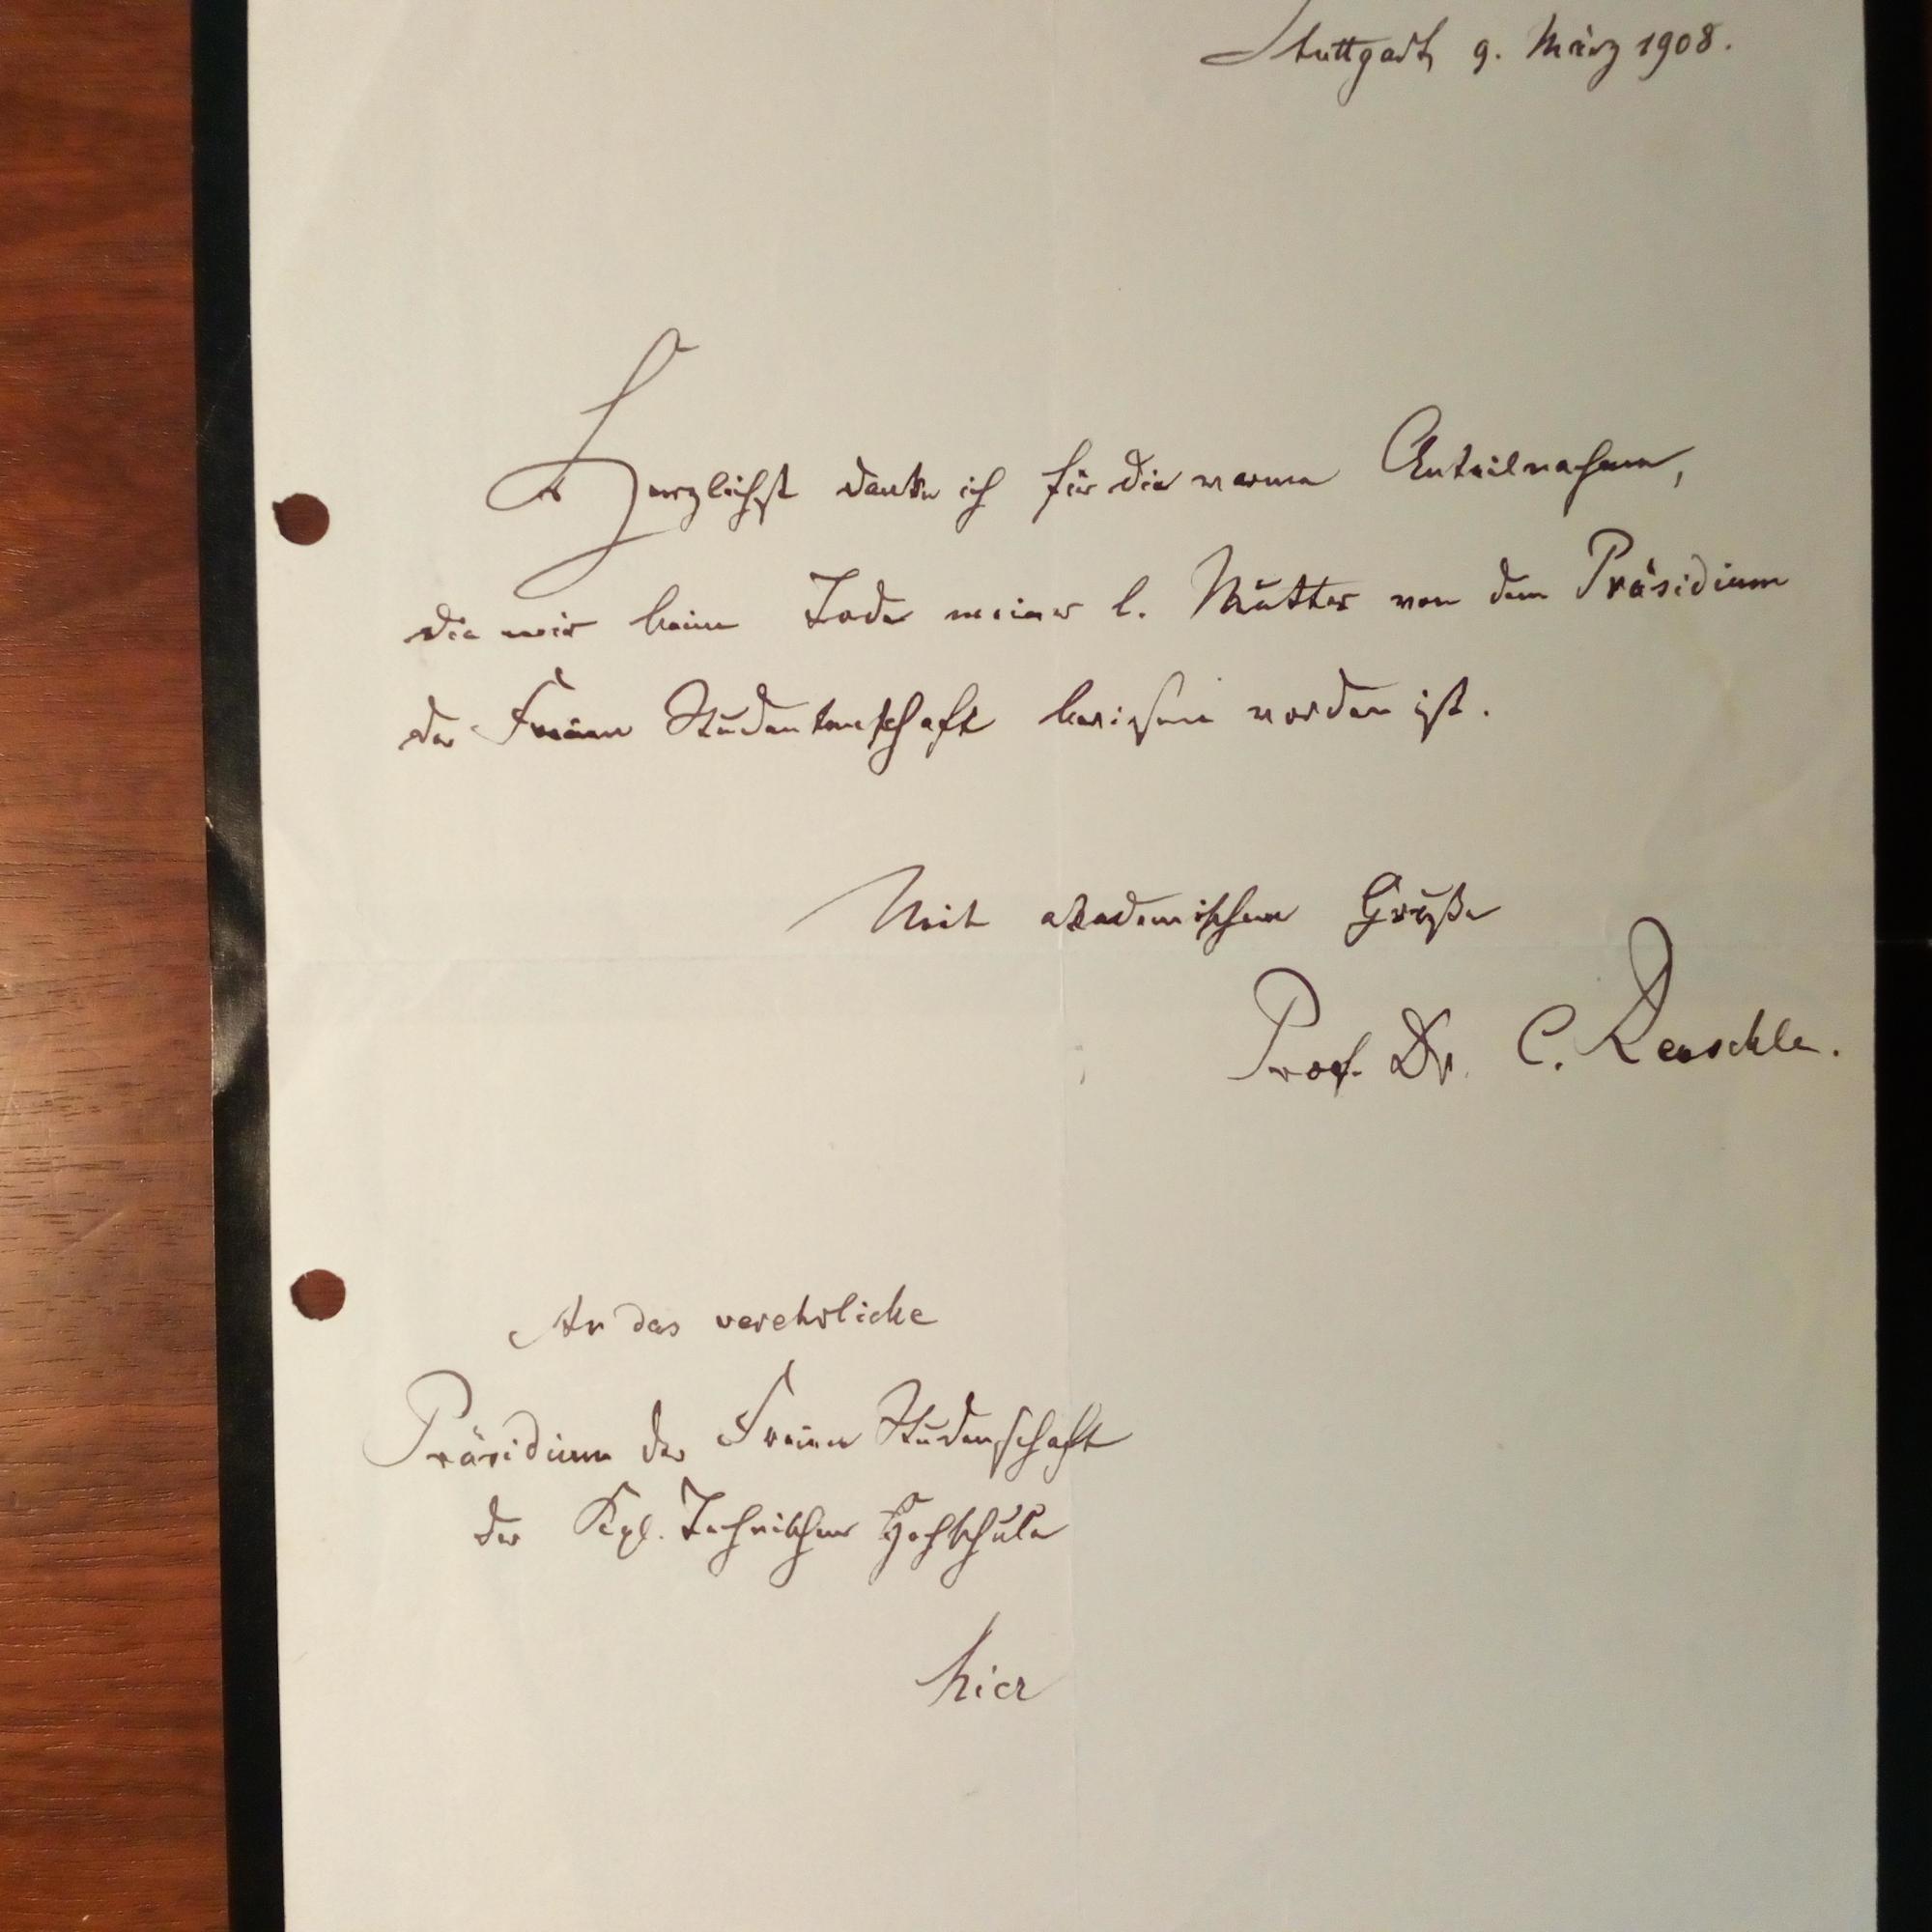 Stuttgart, 9. März 1908.
Herzlichst danke ich für die warme Anteilnahme,
die mir beim Tode meiner l. Mutter von dem Präsidium
der Freien Studentenschaft bewiesen worden ist.
Mit akademischem Gruße
Prof. Dr. C. Reuschle.
An das verehrliche
Präsidium der Freien Studenschaft
der Kgl. Technischen Hochschule
hier